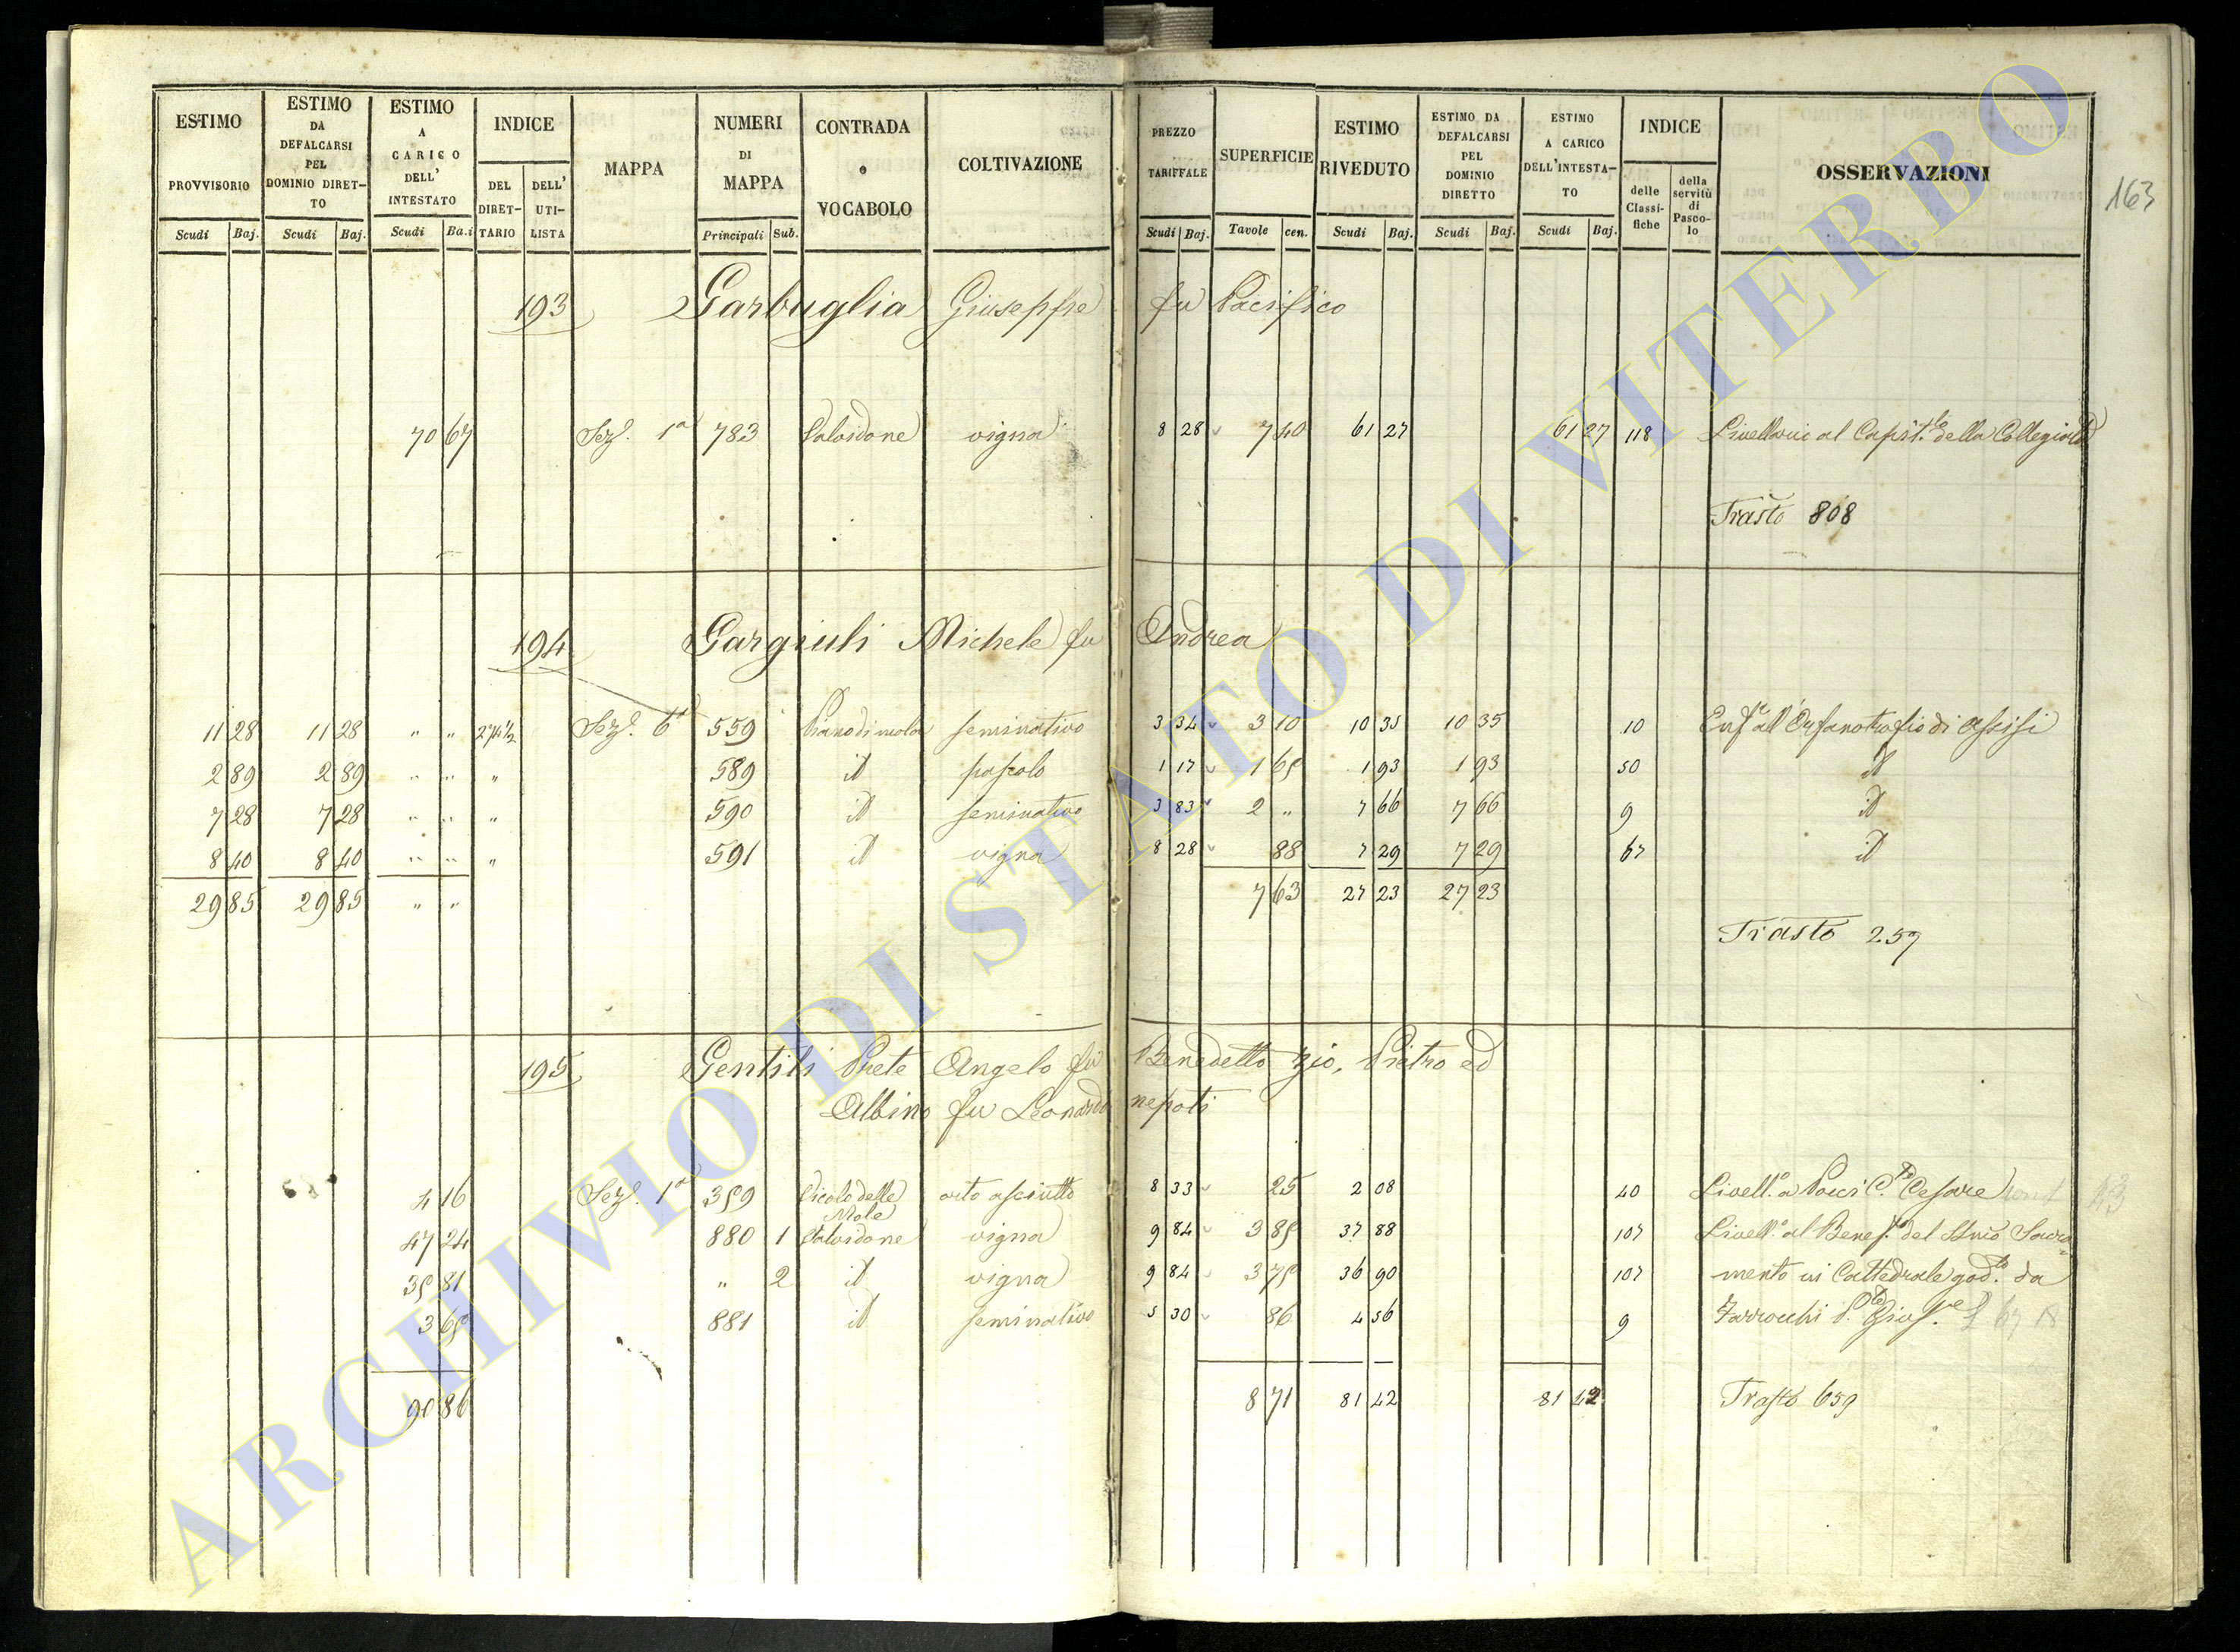 ESTIMO PROVVISORIO Scudi Baj. ESTIMO DA DEFALCARSI PEL DOMINIO DIRETTO Scudi Baj. ESTIMO A CARICO DELL' INTESTATO Scudi Ba.i INDICE DEL DIRETTARIO DELL' UTILISTA MAPPA NUMERI DI MAPPA Principali Sub. CONTRADA o VOCABOLO COLTIVAZIONE PREZZO TARIFFALE Scudi Baj. SUPERFICIE Tavole cen. ESTIMO RIVEDUTO Scudi Baj. ESTIMO DA DEFALCARSI PEL DOMINIO DIRETTO Scudi Baj. ESTIMO A CARICO DELL'INTESTATO Scudi Baj. INDICE delle Classifiche della servitù di Pascolo OSSERVAZIONI
163
193 Garbuglia Giuseppe fu Pacifico
70 67 Sez. 1a 783 vigna 8 28 7 40 61 27 61 27 118 al Capit.lo della Collegiata
Trasto 808
194 Gargiuli Michele fu Andrea
11 28 11 28 " " Sez. 6a 559 Piano di mola seminativo 3 34 3 10 10 35 10 35 10 Enf.a all'Orfanotrofio di Assisi
2 89 2 89 " " " 589 id pascolo 1 17 1 65 1 93 1 93 50 id
7 28 7 28 " " " 590 id seminativo 3 83 2 " 7 66 7 66 9 id
8 40 8 40 " " " 591 id vigna 8 28 88 7 29 7 29 67 id
29 85 29 85 " " 7 63 27 23 27 23
Trasto 257
195 Gentili Prete Angelo fu Benedetto zio, Pietro ed
Albino fu Leonardo nepoti
4 16 Sez. 1a 359 Vicolo delle Mole orto asciutto 8 33 25 2 08 40 Livell.o a Cesare
47 24 880 1 vigna 9 84 3 85 37 88 107 Livell.o al Benef.o del Sacra=
35 81 " 2 id vigna 9 84 3 75 36 90 107 mento in Cattedrale god.to da
3 65 881 id seminativo 5 30 86 4 56 9
90 86 8 71 81 42 81 42 Trasto 659
ARCHIVIO DI STATO DI VITERBO